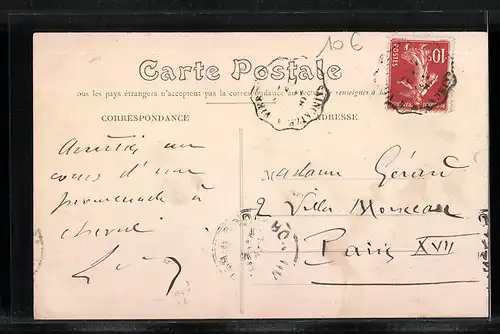 10 €
Carte Postale
ous les pays étrangers n'acceptent pas la correspondance au renseignes
CORRESPONDANCE
ADRESSE
POSTES
10c
cours d'une
promenade à
cheval
Madame Gérard
2 Villa Monceau
Paris XVII